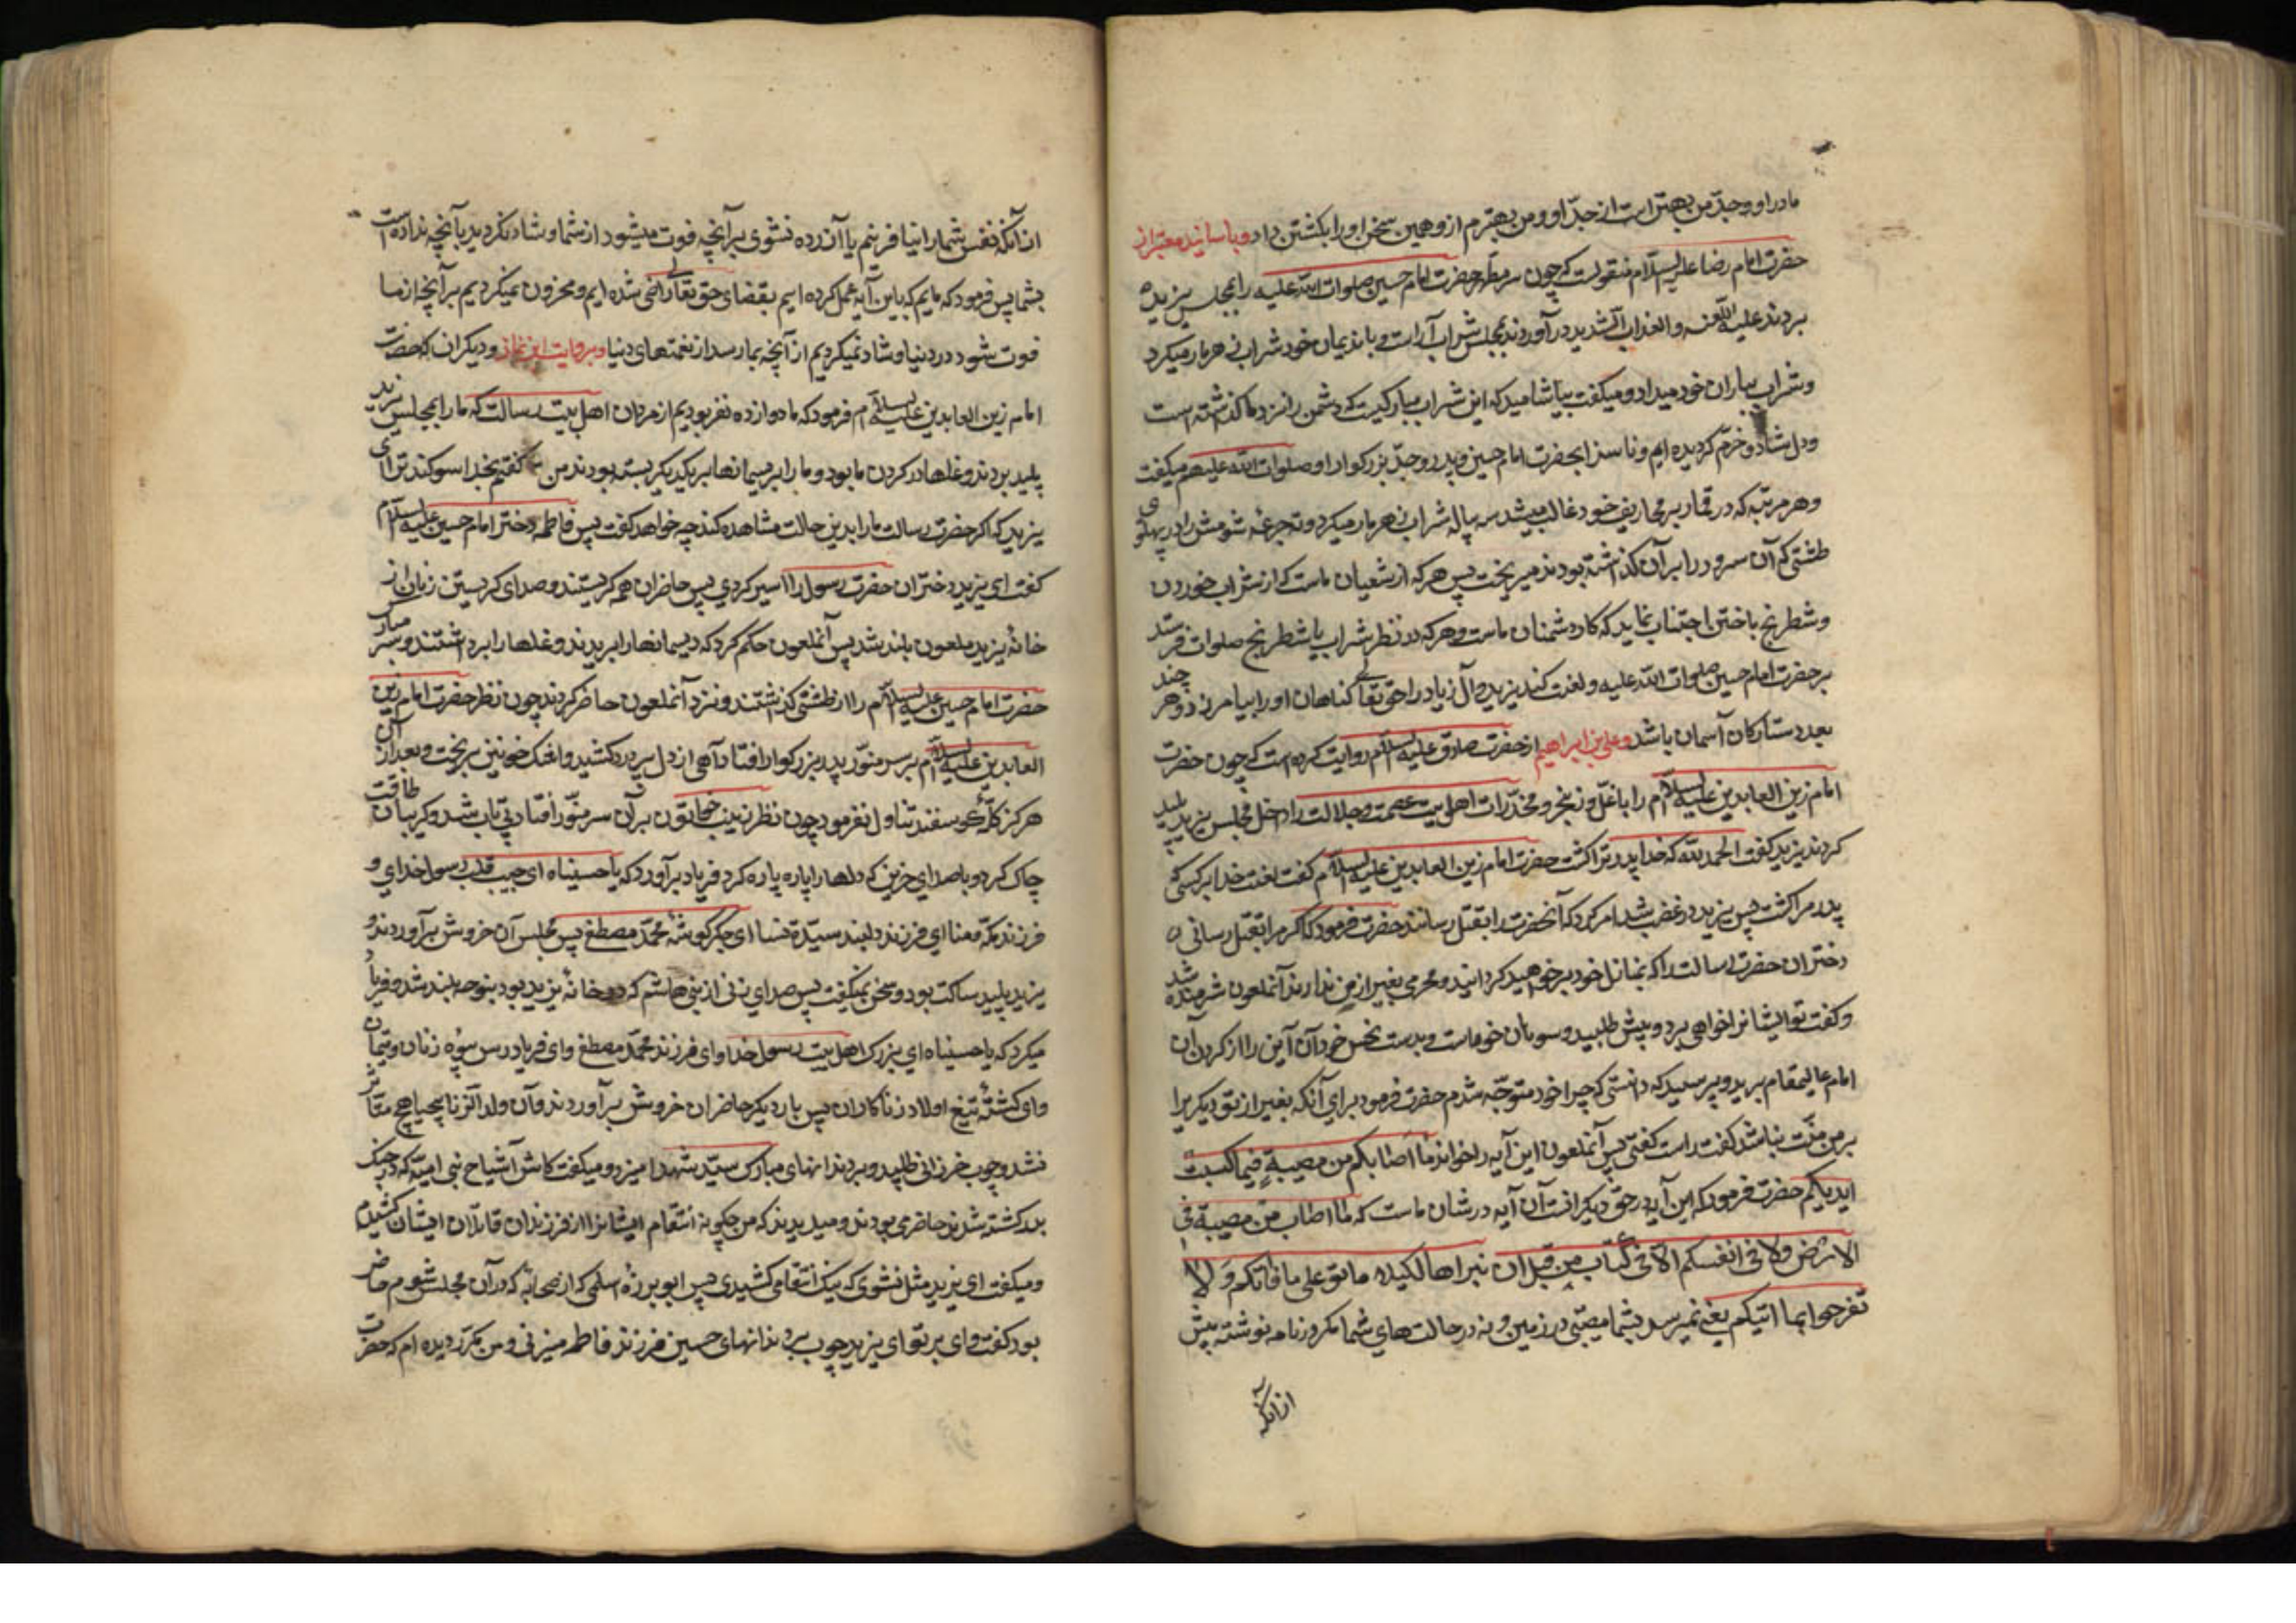 مادر او و جدّ من بهتر است از جدّ او و من بهترم از و همین سخن او را بکشتن داد و باسانید معتبر از
حضرت امام رضا علیه السلام منقولست که چون سر مطهر حضرت امام حسین صلوات الله علیه را بمجلس یزید
بردند علیه اللعنه و العذاب الشدید در آوردند مجلس شراب آراست و با ندیمان خود شراب زهر مار میکرد
و شراب بیاران خود میداد و میکفت بیاشامید که این شراب مبارکیست که دشمن را نزد ما کذاشته است
و دل شاد و خرّم کردیده ایم و ناسزا بحضرت امام حسین و پدر و جدّ بزرکوار او صلوات الله علیهم میکفت
و هر مرتبه که در قمار بر حریف خود غالب میشد سه پیاله شراب زهر مار میکرد و ته جرعه شومش را در پهلوی
طشتی که آن سرور را بر آن کذاشته بودند میریخت پس هر که از شعیان ماست که از شراب خوردن
و شطرنج باختن اجتناب نماید که کار دشمنان ماست و هر که در نظر شراب یا شطرنج صلوات فرستد
بر حضرت امام حسین صلوات الله علیه و لعنت کند یزید و آل زیاد را حق تعالی کناهان او را بیامرزد و هر چند
بعدد ستارکان آسمان باشد و علی بن ابراهیم از حضرت صادق علیه السلام روایت کرده است که چون حضرت
امام زین العابدین علیه السلام را با غلّ و زنجیر و مخدّرات اهل بیت عصمت و جلالت را داخل مجلس یزید پلید
کردند یزید کفت الحمد لله که خدا پدر ترا کشت حضرت امام زین العابدین علیه السلام کفت لعنت خدا بر کسی که
پدر مرا کشت پس یزید در غضب شد امر کرد که آنحضرت را بقتل رسانند حضرت فرمود که اکر مرا بقتل رسانی
دختران حضرت رسالت را که بمنازل خود بر خواهید کردانید و محرمی بغیر از من ندارند آنملعون شرمنده شد
و کفت تو ایشانرا خواهی برد و پیش طلبید و سوهان خواست و بدست نحس خود آن آهن را از کردن آن
امام عالیمقام برید و پرسید که دانستی که چرا خود متوجّه شدم حضرت فرمود برای آنکه بغیر از تو دیکریرا
بر من منّت نباشد کفت راست کفتی پس آنملعون این آیه را خواند ما اصابکم من مصیبة فبما کسبت
ایدیکم حضرت فرمود که این آیه در حق دیکرانست آن آیه در شان ماست که ما اصاب من مصیبة فی
الارض ولا فی انفسکم الا فی کتاب من قبل ان نبراها لکیلا تاسو علی ما فاتکم و لا
تفرحوا بما اتیکم یعنی نمیرسد بشما مصیبتی در زمین و نه در حالتهای شما مکر در نامه نوشته پیش
از آنکه
از آنکه نفس شما را بیافرینم یا آزرده نشوی بر آنچه فوت میشود از شما و شاد نکردید بآنچه نداده است
بشما پس فرمود که مائیم که باین آیه عمل کرده ایم بقضای حق تعالی راضی شده ایم و محزون نمیکردیم بر آنچه از ما
فوت شود در دنیا و شاد نمیکردیم از آنچه بما رسد از نعمتهای دنیا و بروایت ابن نما و دیکران که حضرت
امام زین العابدین علیه السلام فرمود که ما دوازده نفر بودیم از مردان اهل بیت رسالت که ما را بمجلس یزید
پلید بردند و غلها در کردن ما بود و ما را بر ریسمانها بر یکدیکر بسته بودند من کفتم بخدا سوکند ترا ای
یزید که اکر حضرت رسالت ما را بدین حالت مشاهده کند چه خواهد کفت پس فاطمه دختر امام حسین علیه السلام
کفت ای یزید دختران حضرت رسول را اسیر کردی پس حاضران همه کریستند و صدای کریستن زنان از
خانهٔ یزید ملعون بلند شد پس آنملعون حکم کرد که ریسمانها را بریدند و غلها را برداشتند و سر مبارک
حضرت امام حسین علیه السلام را در طشتی کذاشتند و نزد آنملعون حاضر کردند چون نظر حضرت امام زین
العابدین علیه السلام بر سر منوّر پدر بزرکوار افتاد آهی از دل پر درد کشید و اشک خونین بریخت و بعد از آن
هرکز کلّهٔ کوسفند تناول نفرمود چون نظر زینب خاتون بر آن سر منوّر افتاد بی تاب شد و کریبان طاقت
چاک کرد و با صدای حزین که دلها را پاره پاره کرد فریاد بر آورد که یا حسیناه ای حبیب قلب رسول خدای و
فرزند مکّه و منا ای فرزند دلبند سیّدة نسا ای جکر کوشهٔ محمّد مصطفی پس مجلس آن خروش بر آوردند و
یزید پلید ساکت بود و سخن نمیکفت پس صدای زنی از بنی هاشم که در خانهٔ یزید بود بنوحه بلند شد و فریاد
میکرد که یا حسیناه ای بزرک اهل بیت رسول خدا و ای فرزند محمّد مصطفی و ای فریاد رس بیوه زنان و یتیمان
و ای کشتهٔ تیغ اولاد زناکاران پس بار دیکر حاضران خروش بر آوردند و آن ولد الزنا بیحیا هیچ متأثر
نشد و چوب خزرانی طلبید و بر دندانهای مبارک سیّد شهدا میزد و میکفت کاش اشیاخ بنی امیّه که در جنک
بدر کشته شدند حاضر می بودند و میدیدند که من چکونه انتقام ایشانرا از فرزندان قاتلان ایشان کشیدم
و میکفت ای یزید مثل نشوی که نیک انتقام کشیدی پس ابو برزهٔ اسلمی که از صحابه که در آن مجلس شوم حاضر
بود کفت وای بر تو ای یزید چوب بر دندانهای حسین فرزند فاطمه میزنی و من مکرّر دیده ام که حضرت